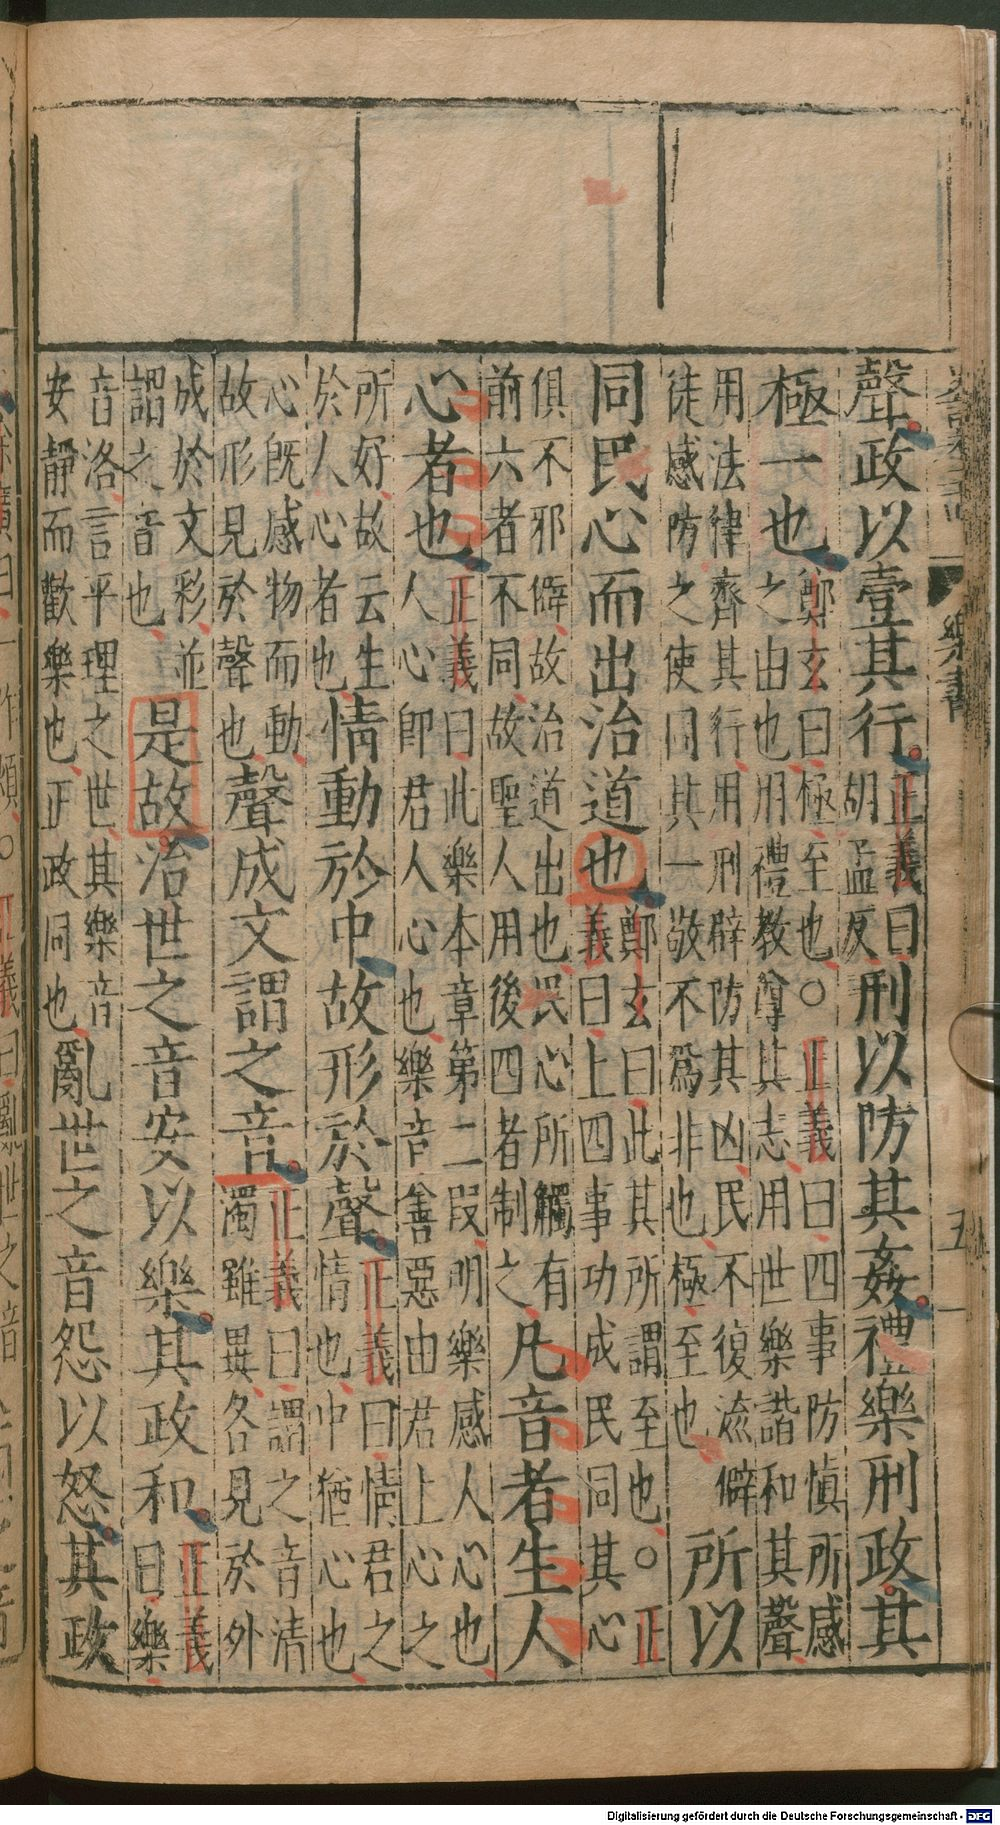 聲政以壹其行正義曰
胡孟反刑以防其姦禮樂刑政其
極一也鄭玄曰極至也○正義曰四事防慎所感
之由也用禮教導其志用世樂諧和其聲
用法律齊其行用刑辟防其凶民不復流僻
徒感防之使同其一敬不爲非也極至也所以
同民心而出治道也鄭玄曰此其所謂至也○正
義曰上四事功成民同其心
俱不邪僻故治道出也民心所觸有
前六者不同故聖人用後四者制之凡音者生人
心者也正義曰此樂本章第二段明樂感人心也
人心卽君人心也樂音善惡由君上心之
所好故云生
於人心者也情動於中故形於聲正義曰情君之
情也中猶心也
心旣感物而動
故形見於聲也聲成文謂之音正義曰謂之音清
濁雖異各見於外
成於文彩並
謂之音也是故治世之音安以樂其政和正義
曰樂
音洛言平理之世其樂音
安靜而歡樂也正政同也亂世之音怨以怒其政
樂書
五
Digitalisierung gefördert durch die Deutsche Forschungsgemeinschaft - DFG